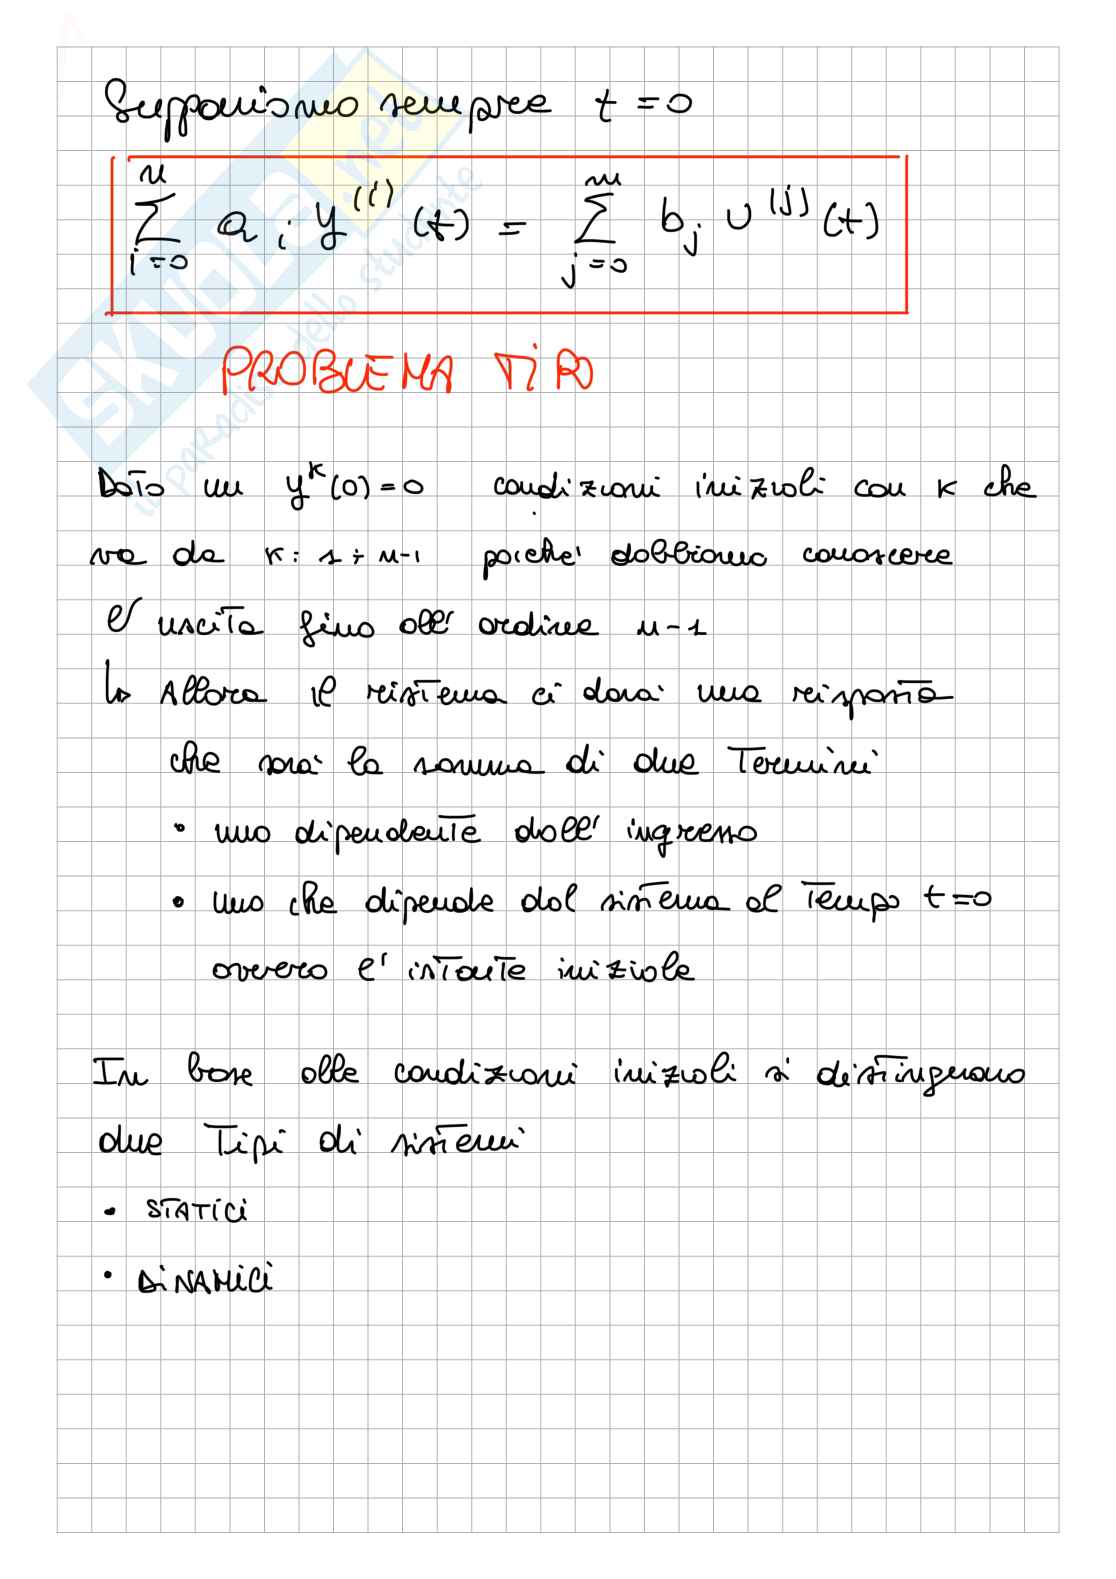 Supponiamo sempre t = 0
n m
∑ a i y (i) (t) = ∑ b j u (j) (t)
i=0 j=0
PROBLEMA TIPO
Dato un y^k (0) = 0 condizioni inizioli con k che
va da k : 1 ÷ n-1 poiche' dobbiamo conoscere
l' uscita fino all' ordine n-1
↳ Allora il sistema ci dara' una risposta
che sara' la somma di due Termini
• uno dipendente dall' ingresso
• uno che dipende dal sistema al Tempo t=0
ovvero l' istante iniziale
In base alle condizioni inizioli si distinguono
due Tipi di sistemi
• STATICI
• DINAMICI
SKUOLA.net
il paradiso dello studente